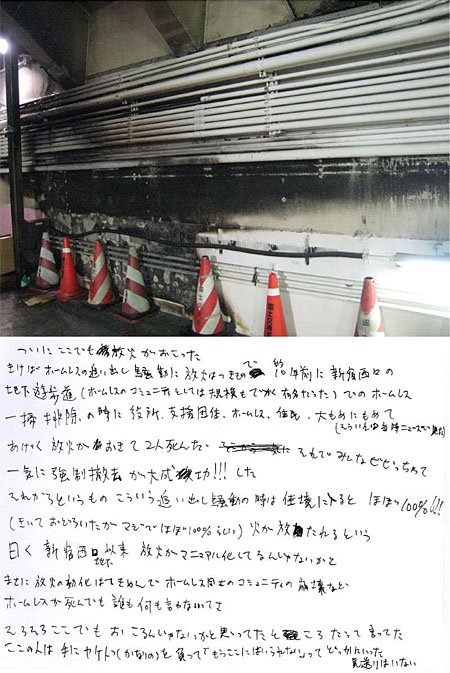 ついにここでも放火がおこった
きけばホームレスの追い出し騒動に放火はつきもので 約10年前に新宿西口の
地下遊歩道(ホームレスのコミュニティとしては規模もでかく有名だった)でのホームレス
一掃排除の時に役所、支援団体、ホームレス、住民、大もめにもめて
(そういえば当時ニュースで見た)
あげく放火がおきて2人死んだ。それでみんなビビっちゃって
一気に強制撤去が大成功!!!した
それからというものこういう追い出し騒動の時は佳境に入ると ほぼ100%!!!
(きいておどろいたがマジでほぼ100%らしい)火が放たれるという
曰く新宿西口地下以来 放火がマニュアル化してるんじゃないかと
まさに放火の効化はてきめんでホームレス同士のコミュニティの崩壊など
ホームレスが死んでも誰も何も言わないてさ
そろそろここでもおこるんじゃないかと思ってたところだって言ってた
ここの人は手にヤケド(かなりの)を負って「もうここにはいられない」ってどっかにいった
見送りはいない